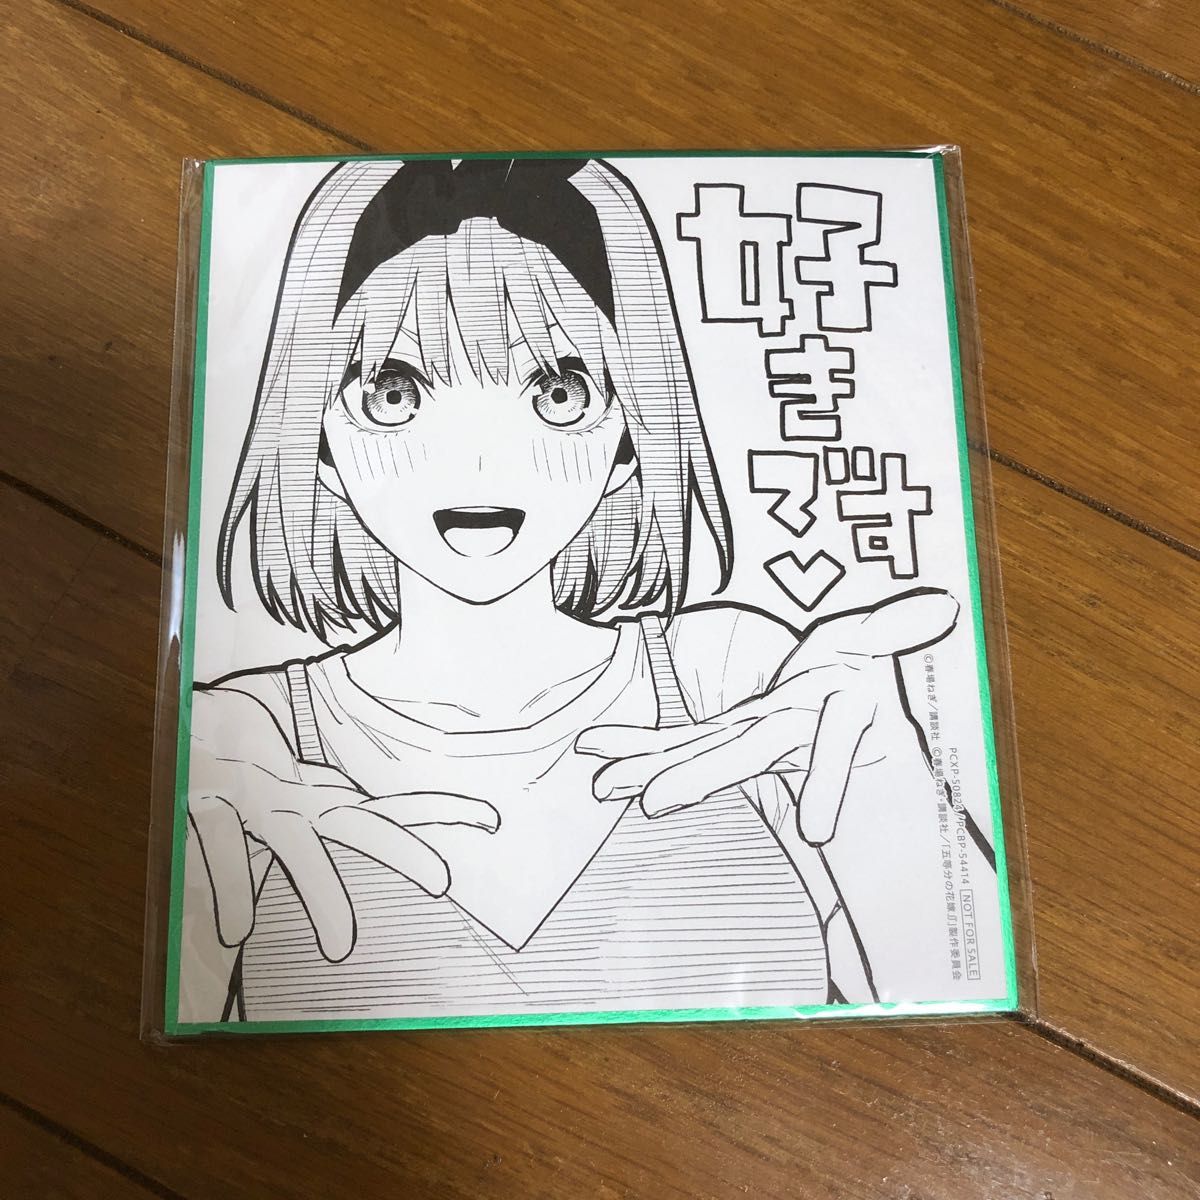 好きです♡
©春場ねぎ／講談社 ©春場ねぎ・講談社／「五等分の花嫁∬」製作委員会
PCXP-50824//PCBP-54414 NOT FOR SALE